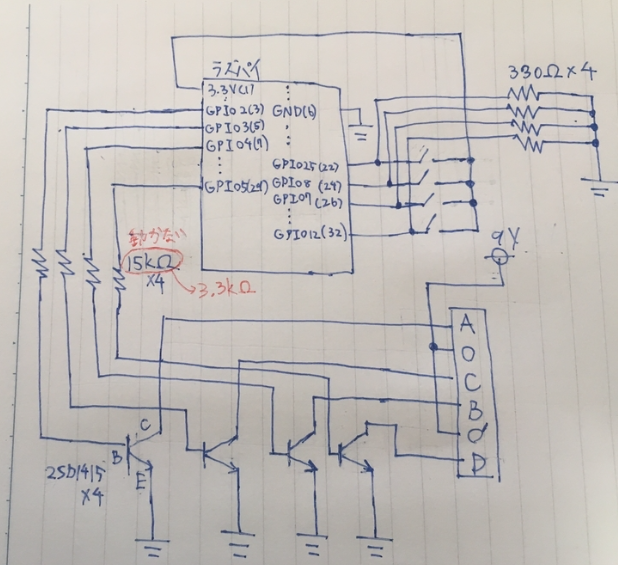 ラズパイ
3.3V(1)
GPIO2(3)
GND(6)
GPIO3(5)
GPIO4(7)
GPIO25(22)
GPIO5(29)
GPIO8(24)
GPIO7(26)
GPIO12(32)
330Ω×4
動かない
15kΩ
×4
3.3kΩ
9V
A
O
C
B
O
D
C
B
E
2SD1415
×4